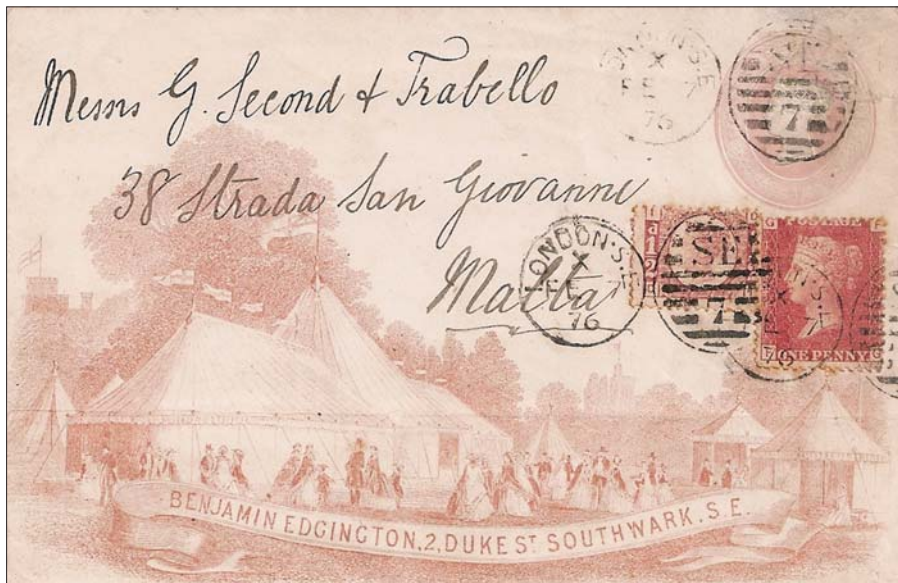 Messrs G. Second & Trabello
38 Strada San Giovanne
Malta
LONDON·S.E
X
FE 7
76
S.E
7
LONDON·S.E
X
FE 7
76
SE
7
d 1/2
ONE PENNY
BENJAMIN EDGINGTON, 2, DUKE ST SOUTHWARK. S.E.